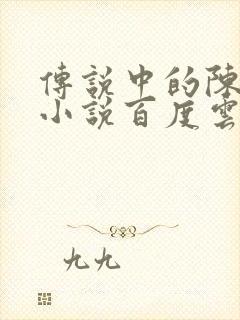 傳說中的陳
小說百度雲
九九